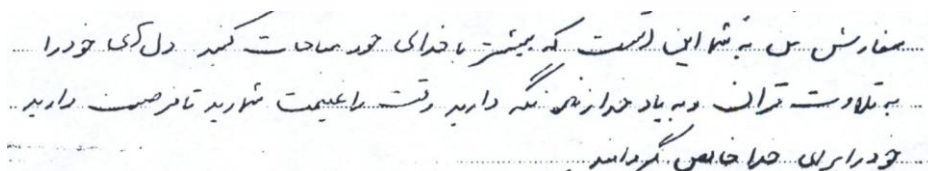 سفارش من به شما این است که بیشتر با خدای خود مناجات کنید دل های خود را
به تلاوت قرآن و به یاد خدا زنده نگه دارید وقت را غنیمت شمارید تا فرصت دارید
خود را برای خدا خالص گردانید